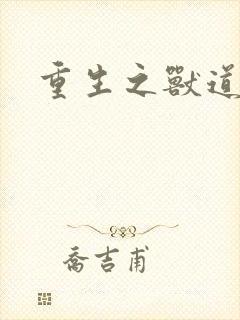 重生之獸道
喬吉甫